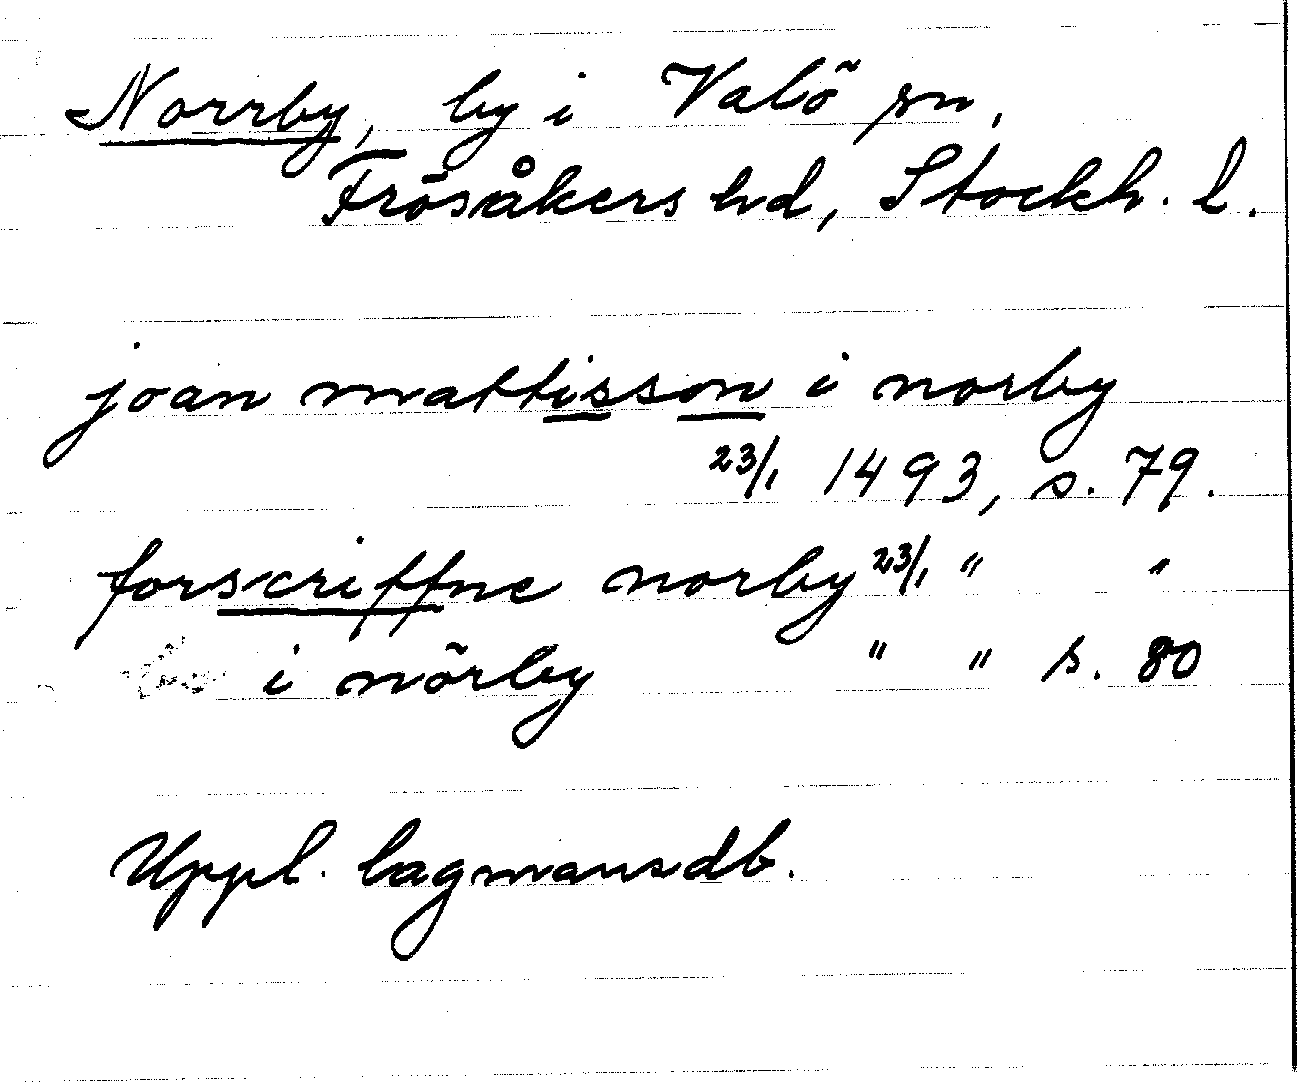 Norrby, by i Valö sn,
Frösåkers hd, Stockh. l.
joan mattisson i norby
23/1 1493, s. 79.
forscriffne norby 23/1 " "
i nörby " " s. 80
Uppl. lagmansdb.